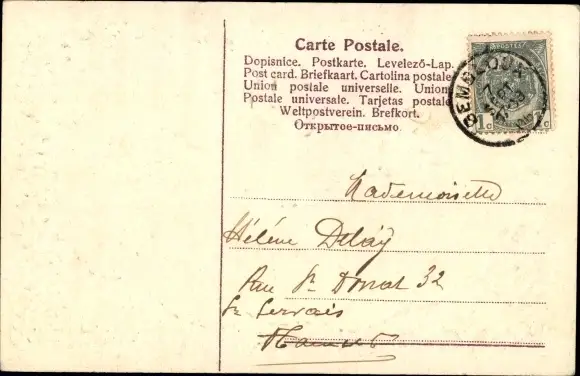 Carte Postale.
Dopisnice. Postkarte. Levelező-Lap.
Post card. Briefkaart. Cartolina postale
Union postale universelle. Union
Postale universale. Tarjetas postale
Weltpostverein. Brefkort.
Открытое-письмо
POSTES
1c c
GEMBLOUX
7
OCT
Mademoiselle
Hélène Delay
Rue St Donat 32
St Servais
Namur